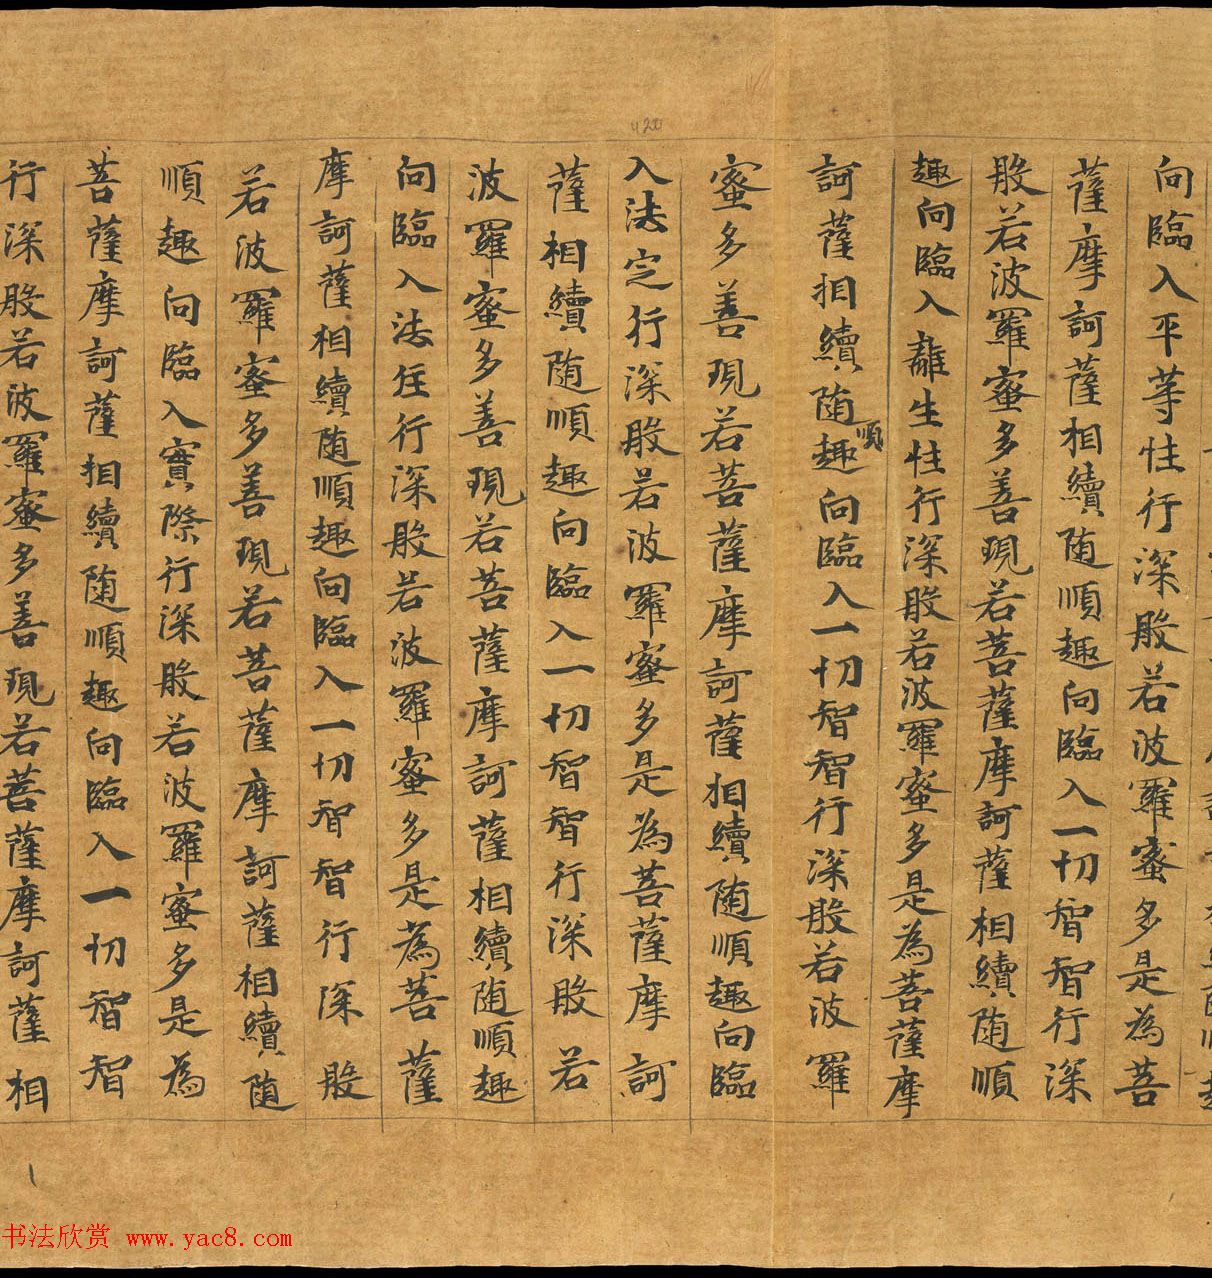 向臨入平等性行深般若波羅蜜多是為菩
薩摩訶薩相續随順趣向臨入一切智智行深
般若波羅蜜多善現若菩薩摩訶薩相續随順
趣向臨入離生性行深般若波羅蜜多是為菩薩摩
訶薩相續随順趣向臨入一切智智行深般若波羅
蜜多善現若菩薩摩訶薩相續随順趣向臨
入法定行深般若波羅蜜多是為菩薩摩訶
薩相續随順趣向臨入一切智智行深般若
波羅蜜多善現若菩薩摩訶薩相續随順趣
向臨入法住行深般若波羅蜜多是為菩薩
摩訶薩相續随順趣向臨入一切智智行深般
若波羅蜜多善現若菩薩摩訶薩相續随
順趣向臨入實際行深般若波羅蜜多是為
菩薩摩訶薩相續随順趣向臨入一切智智
行深般若波羅蜜多善現若菩薩摩訶薩相
书法欣赏 www.yac8.com